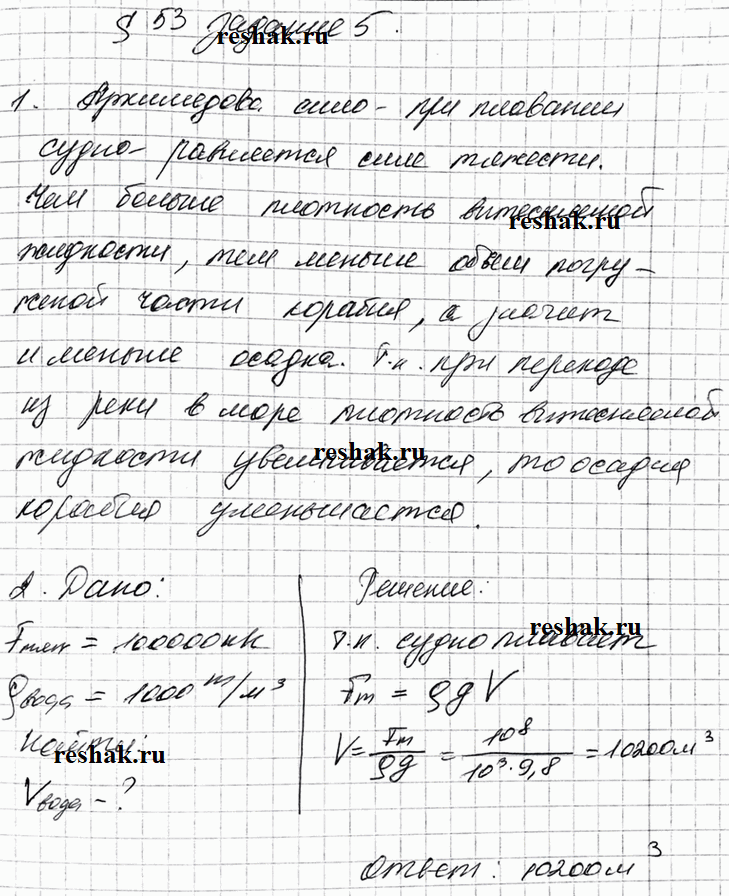 § 53 Задание 5.
reshak.ru
1. Архимедова сила - при плавании
судно - равняется силе тяжести.
Чем больше плотность вытесненной
reshak.ru
жидкости, тем меньше объем погру-
женой части корабля, а значит
и меньше осадка. Т.к. при переходе
из реки в море плотность вытесняемой
reshak.ru
жидкости увеличивается, то осадка
корабля уменьшается.
2. Дано:
Fтяж = 100000кН
ρвода = 1000 т/м³
Найти:
reshak.ru
Vвода - ?
Решение:
reshak.ru
т.к. судно плавает
Fт = ρgV
V = Fт/ρg = 10⁸/10³·9,8 = 10200м³
Ответ: 10200м³